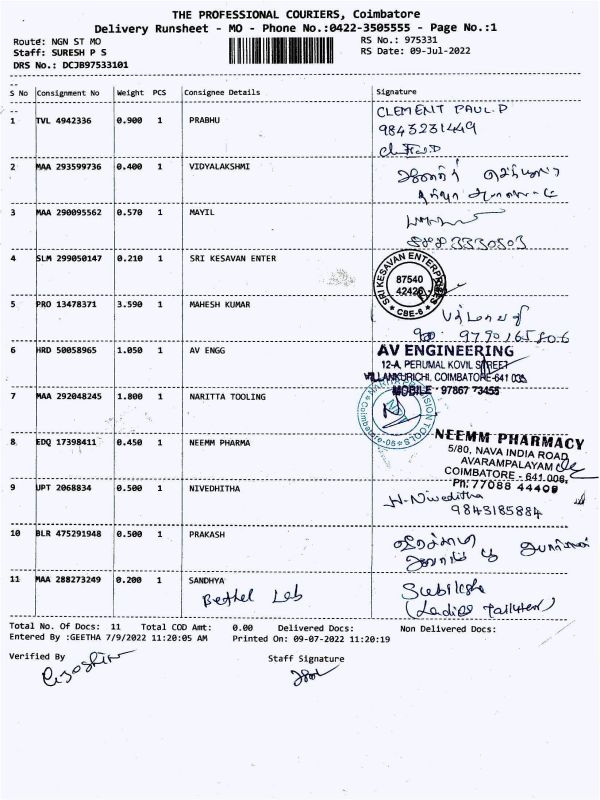 THE PROFESSIONAL COURIERS, Coimbatore
Delivery Runsheet - MO - Phone No.:0422-3505555 - Page No.:1
Route: NGN ST MO
Staff: SURESH P S
DRS No.: DCJB97533101
RS No.: 975331
RS Date: 09-Jul-2022
S No Consignment No Weight PCS Consignee Details Signature
1 TVL 4942336 0.900 1 PRABHU
CLEMENT PAUL.P
9843231449
2 MAA 293599736 0.400 1 VIDYALAKSHMI
3 MAA 290095562 0.570 1 MAYIL
4 SLM 299050147 0.210 1 SRI KESAVAN ENTER
SRI KESAVAN ENTERPRISES
87540
CBE-6
5 PRO 13478371 3.590 1 MAHESH KUMAR
6 HRD 50058965 1.050 1 AV ENGG
AV ENGINEERING
12-A, PERUMAL KOVIL STREET
VILLANKURICHI, COIMBATORE-641 035
MOBILE : 97867 73455
7 MAA 292048245 1.800 1 NARITTA TOOLING
8 EDQ 17398411 0.450 1 NEEMM PHARMA
NEEMM PHARMACY
5/80, NAVA INDIA ROAD
AVARAMPALAYAM
COIMBATORE - 641 006.
Ph: 77088 44409
9 UPT 2068834 0.500 1 NIVEDHITHA
H. Niveditha
9843185884
10 BLR 475291948 0.500 1 PRAKASH
11 MAA 288273249 0.200 1 SANDHYA
Bethel Lab
(Ladies
Total No. Of Docs: 11 Total COD Amt: 0.00 Delivered Docs: Non Delivered Docs:
Entered By :GEETHA 7/9/2022 11:20:05 AM Printed On: 09-07-2022 11:20:19
Verified By
Staff Signature